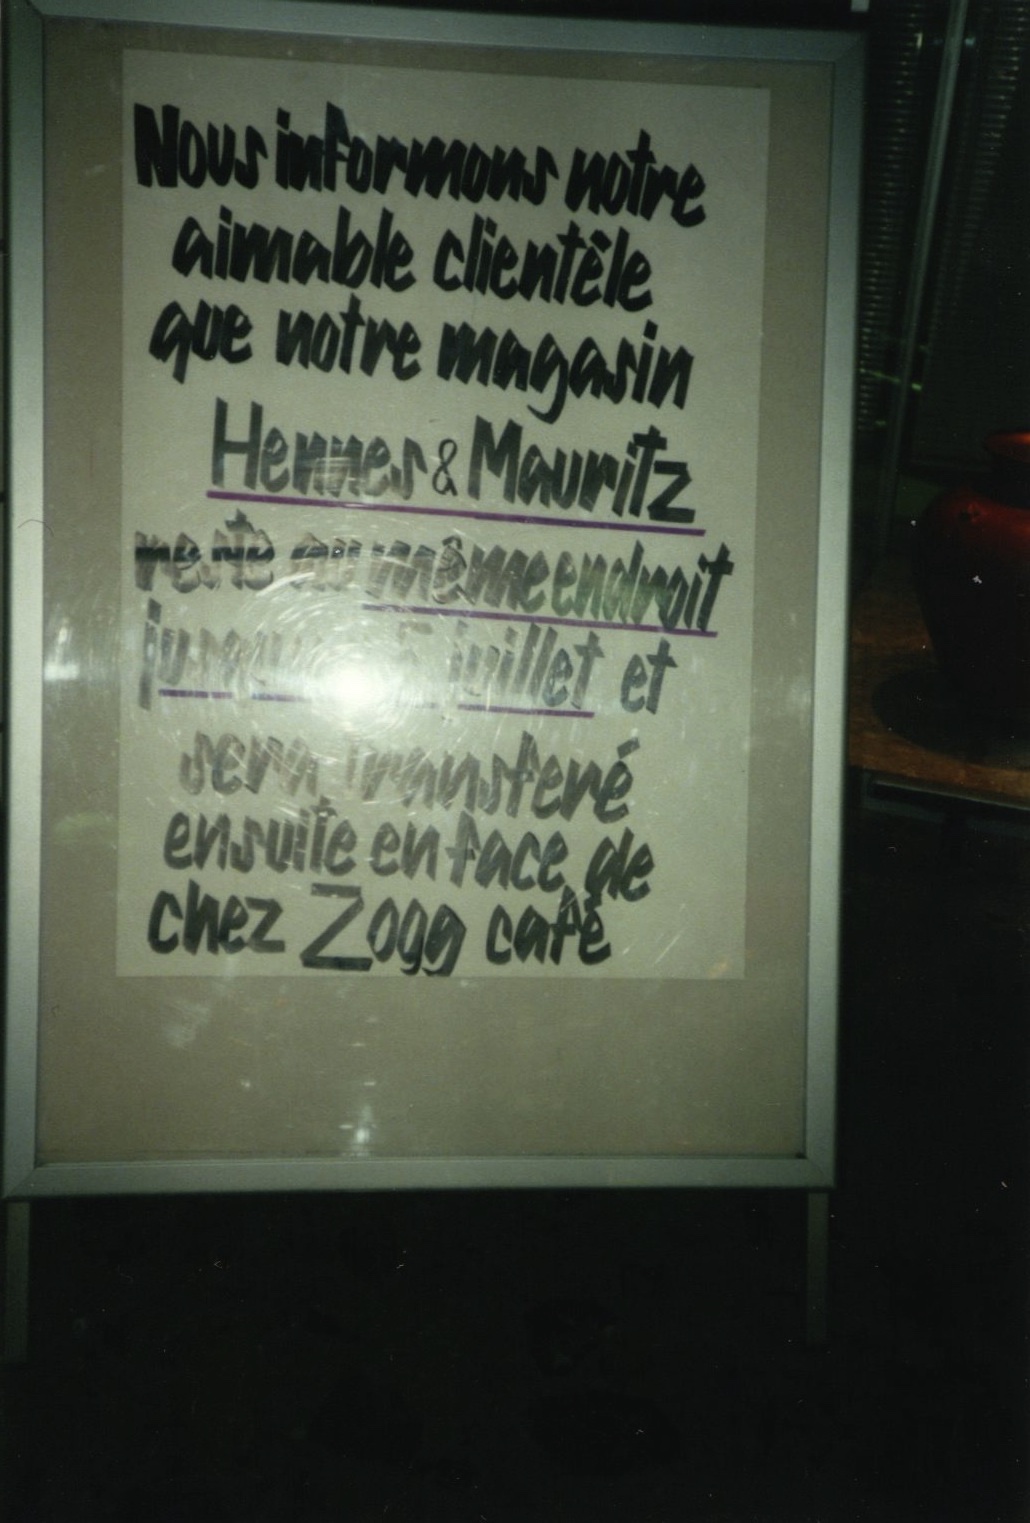 Nous informons notre
aimable clientèle
que notre magasin
Hennes & Mauritz
reste au même endroit
juillet et
sera transferé
ensuite en face de
chez Zogg café